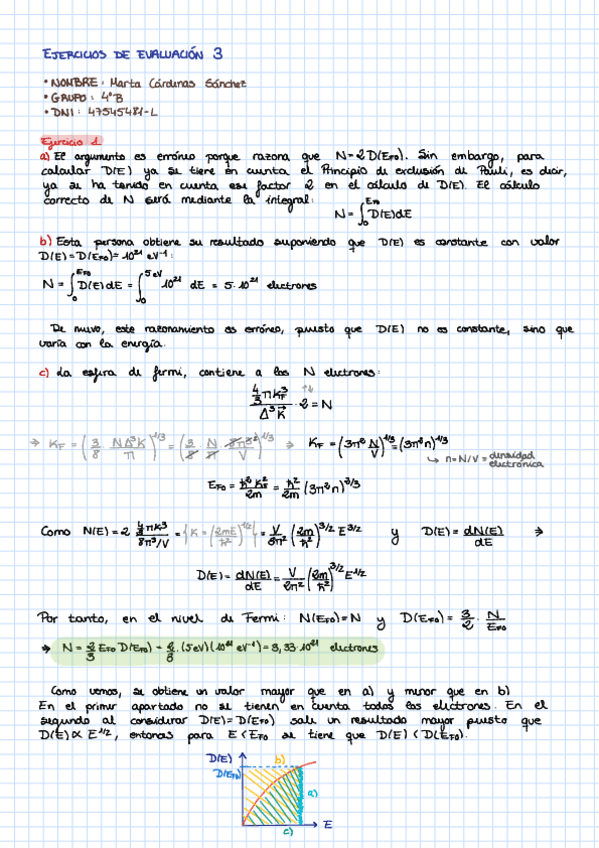 EJERCICIOS DE EVALUACIÓN 3
• NOMBRE: Marta Cárdenas Sánchez
• GRUPO: 4ºB
• DNI: 47545481-L
Ejercicio 1
a) El argumento es erróneo porque razona que N=2D(E_F0). Sin embargo, para
calcular D(E) ya se tiene en cuenta el Principio de exclusión de Pauli, es decir,
ya se ha tenido en cuenta ese factor 2 en el cálculo de D(E). El cálculo
correcto de N será mediante la integral:
N = ∫₀^{E_F0} D(E)dE
b) Esta persona obtiene su resultado suponiendo que D(E) es constante con valor
D(E)=D(E_F0)=10²¹ eV⁻¹:
N = ∫₀^{E_F0} D(E)dE = ∫₀^{5eV} 10²¹ dE = 5·10²¹ electrones
De nuevo, este razonamiento es erróneo, puesto que D(E) no es constante, sino que
varía con la energía.
c) La esfera de fermi, contiene a los N electrones:
(4/3 πk_F³)/(Δ³k⃗) · 2 = N ↑↓
⇒ K_F = (3/8 · NΔ³K/π)^{1/3} = (3/8 · N/π · 8π³/V)^{1/3} ⇒ K_F = (3π² N/V)^{1/3} = (3π²n)^{1/3}
↳ n=N/V = densidad electrónica
E_F0 = ħ²k_F²/2m = ħ²/2m (3π²n)^{2/3}
Como N(E) = 2 (4/3 πk³)/(8π³/V) = {K = (2mE/ħ²)^{1/2}} = V/3π² (2m/ħ²)^{3/2} E^{3/2} y D(E) = dN(E)/dE ⇒
D(E) = dN(E)/dE = V/2π² (2m/ħ²)^{3/2} E^{1/2}
Por tanto, en el nivel de Fermi: N(E_F0)=N y D(E_F0) = 3/2 · N/E_F0
⇒ N = 2/3 E_F0 D(E_F0) = 2/3 · (5eV)(10²¹ eV⁻¹) = 3,33·10²¹ electrones
Como vemos, se obtiene un valor mayor que en a) y menor que en b)
En el primer apartado no se tienen en cuenta todos los electrones. En el
segundo al considerar D(E)=D(E_F0) sale un resultado mayor puesto que
D(E) ∝ E^{1/2}, entonces para E<E_F0 se tiene que D(E)<D(E_F0).
D(E)
b)
D(E_F0)
a)
c)
E